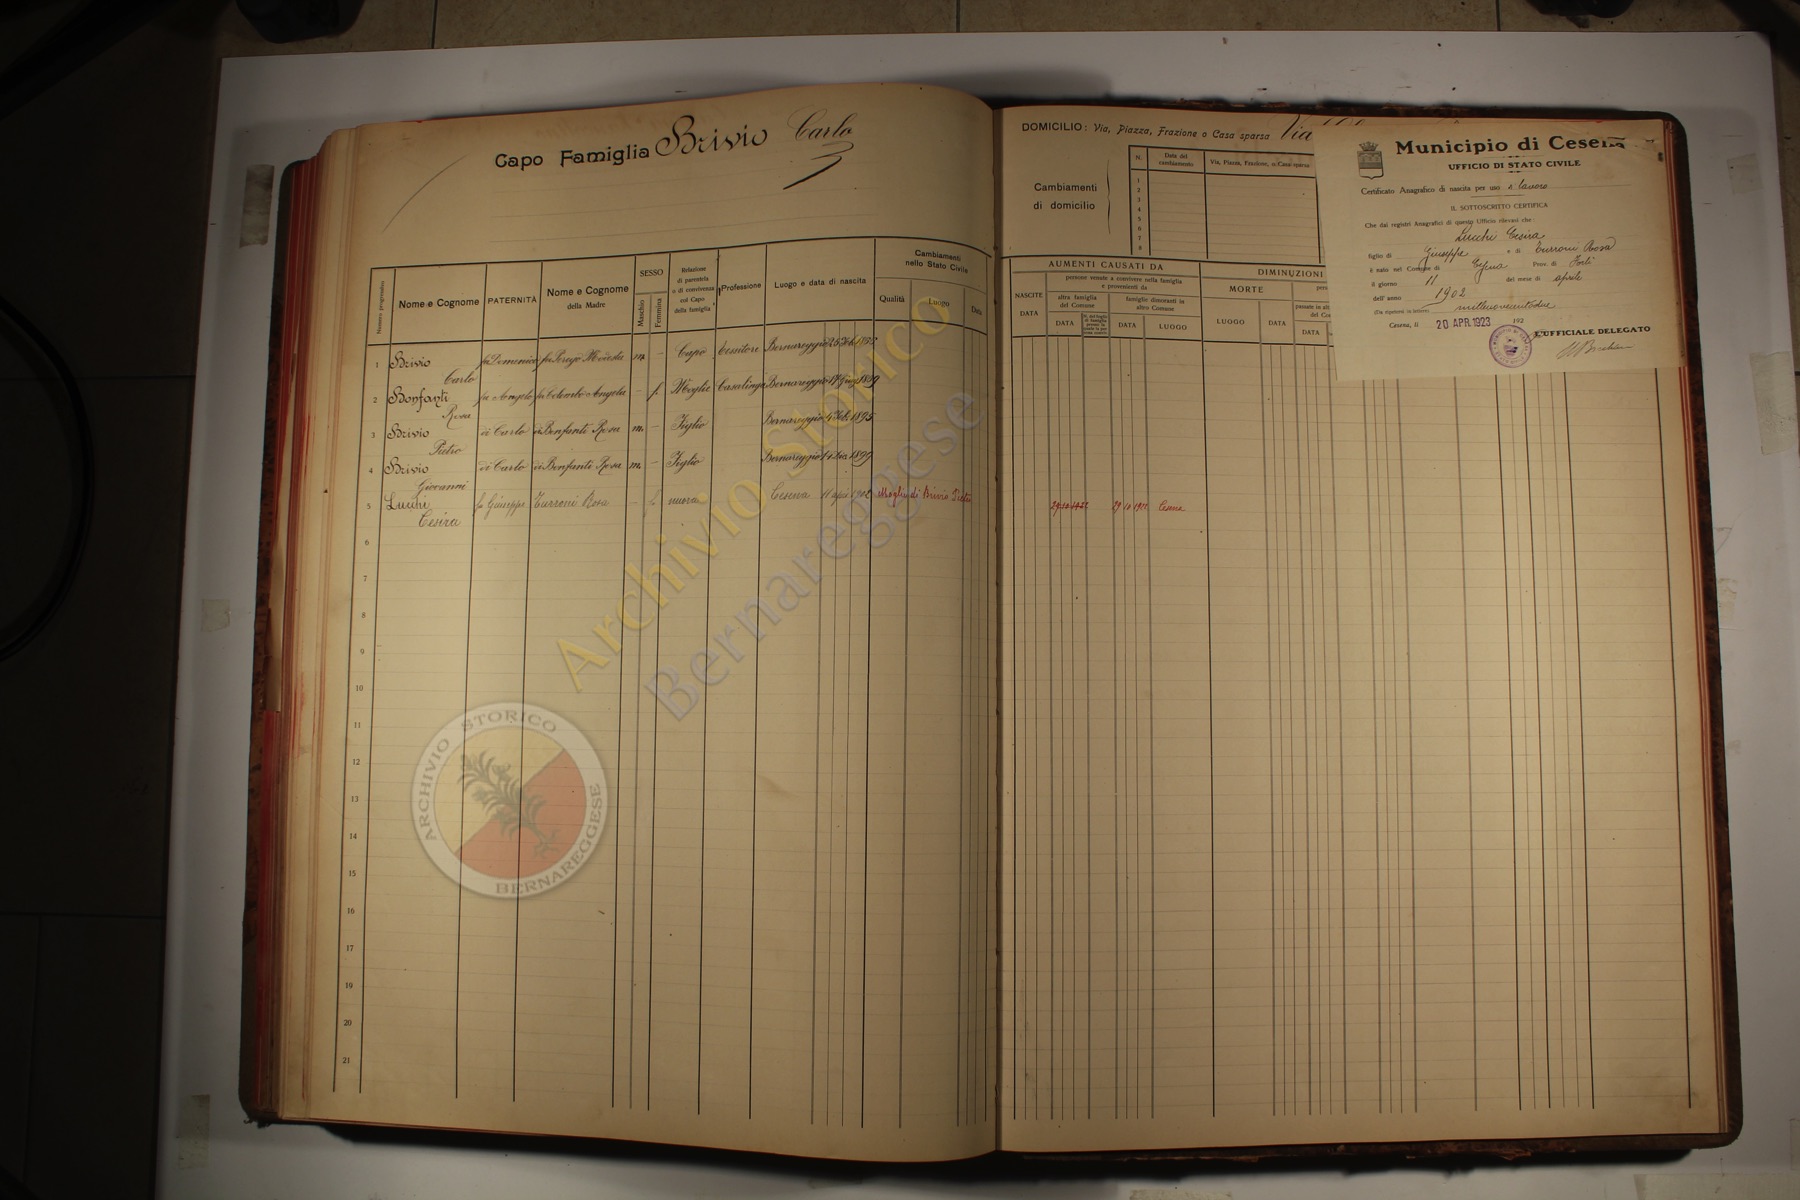 Capo Famiglia Brivio Carlo
Numero progressivo
Nome e Cognome
PATERNITÀ
Nome e Cognome
della Madre
SESSO
Maschio
Femmina
Relazione
di parentela
o di convivenza
col Capo
della famiglia
Professione
Luogo e data di nascita
Cambiamenti
nello Stato Civile
Qualità
Luogo
Data
1 Brivio Carlo fu Domenico fu Perego Modesta m. – Capo Tessitore Bernareggio
2 Bonfanti Rosa fu Angelo fu Colombo Angela – f. Moglie Casalinga Bernareggio
3 Brivio Pietro di Carlo di Bonfanti Rosa m. – Figlio Bernareggio 4 Feb. 1895
4 Brivio Giovanni di Carlo di Bonfanti Rosa m. – Figlio Bernareggio 1899
5 Lucchi Cesira fu Giuseppe Turroni Rosa – f. nuora Cesena 11 aprile 1902 Moglie di Brivio Pietro
6
7
8
9
10
11
12
13
14
15
16
17
18
19
20
21
DOMICILIO: Via, Piazza, Frazione o Casa sparsa Via
Cambiamenti
di domicilio
N.
Data del
cambiamento
Via, Piazza, Frazione, o Casa sparsa
1
2
3
4
5
6
7
8
AUMENTI CAUSATI DA
DIMINUZIONI
NASCITE
DATA
persone venute a convivere nella famiglia
e provenienti da
altra famiglia
del Comune
famiglie dimoranti in
altro Comune
DATA
DATA
LUOGO
MORTE
LUOGO
DATA
DATA
29 10 1922 Cesena
Municipio di Cesena
UFFICIO DI STATO CIVILE
Certificato Anagrafico di nascita per uso lavoro
IL SOTTOSCRITTO CERTIFICA
Che dai registri Anagrafici di questo Ufficio rilevasi che:
Lucchi Cesira
figlio di Giuseppe e di Turroni Rosa
è nato nel Comune di Cesena Prov. di Forlì
il giorno 11 del mese di aprile
dell'anno 1902
(Da ripetersi in lettere) millenovecentodue
Cesena, li 20 APR. 1923 192
L'UFFICIALE DELEGATO
Archivio Storico
Bernareggese
ARCHIVIO STORICO
BERNAREGGESE